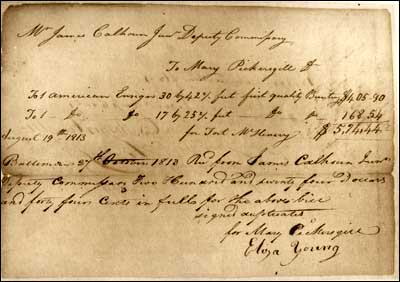 Mr James Calhoun Junr Deputy Commissary
To Mary Pickersgill Dr
To 1 American Ensign 30 by 42 feet first quality Bunting $405.90
To 1 do do 17 by 25 feet do do 168.54
August 19th 1813 for Fort McHenry $574.44
Baltimore 27th October 1813 Recd from James Calhoun Junr
Deputy Commissary Five Hundred and seventy four Dollars
and forty four Cents in full for the above bill
signed duplicates
for Mary Pickersgill
Eliza Young